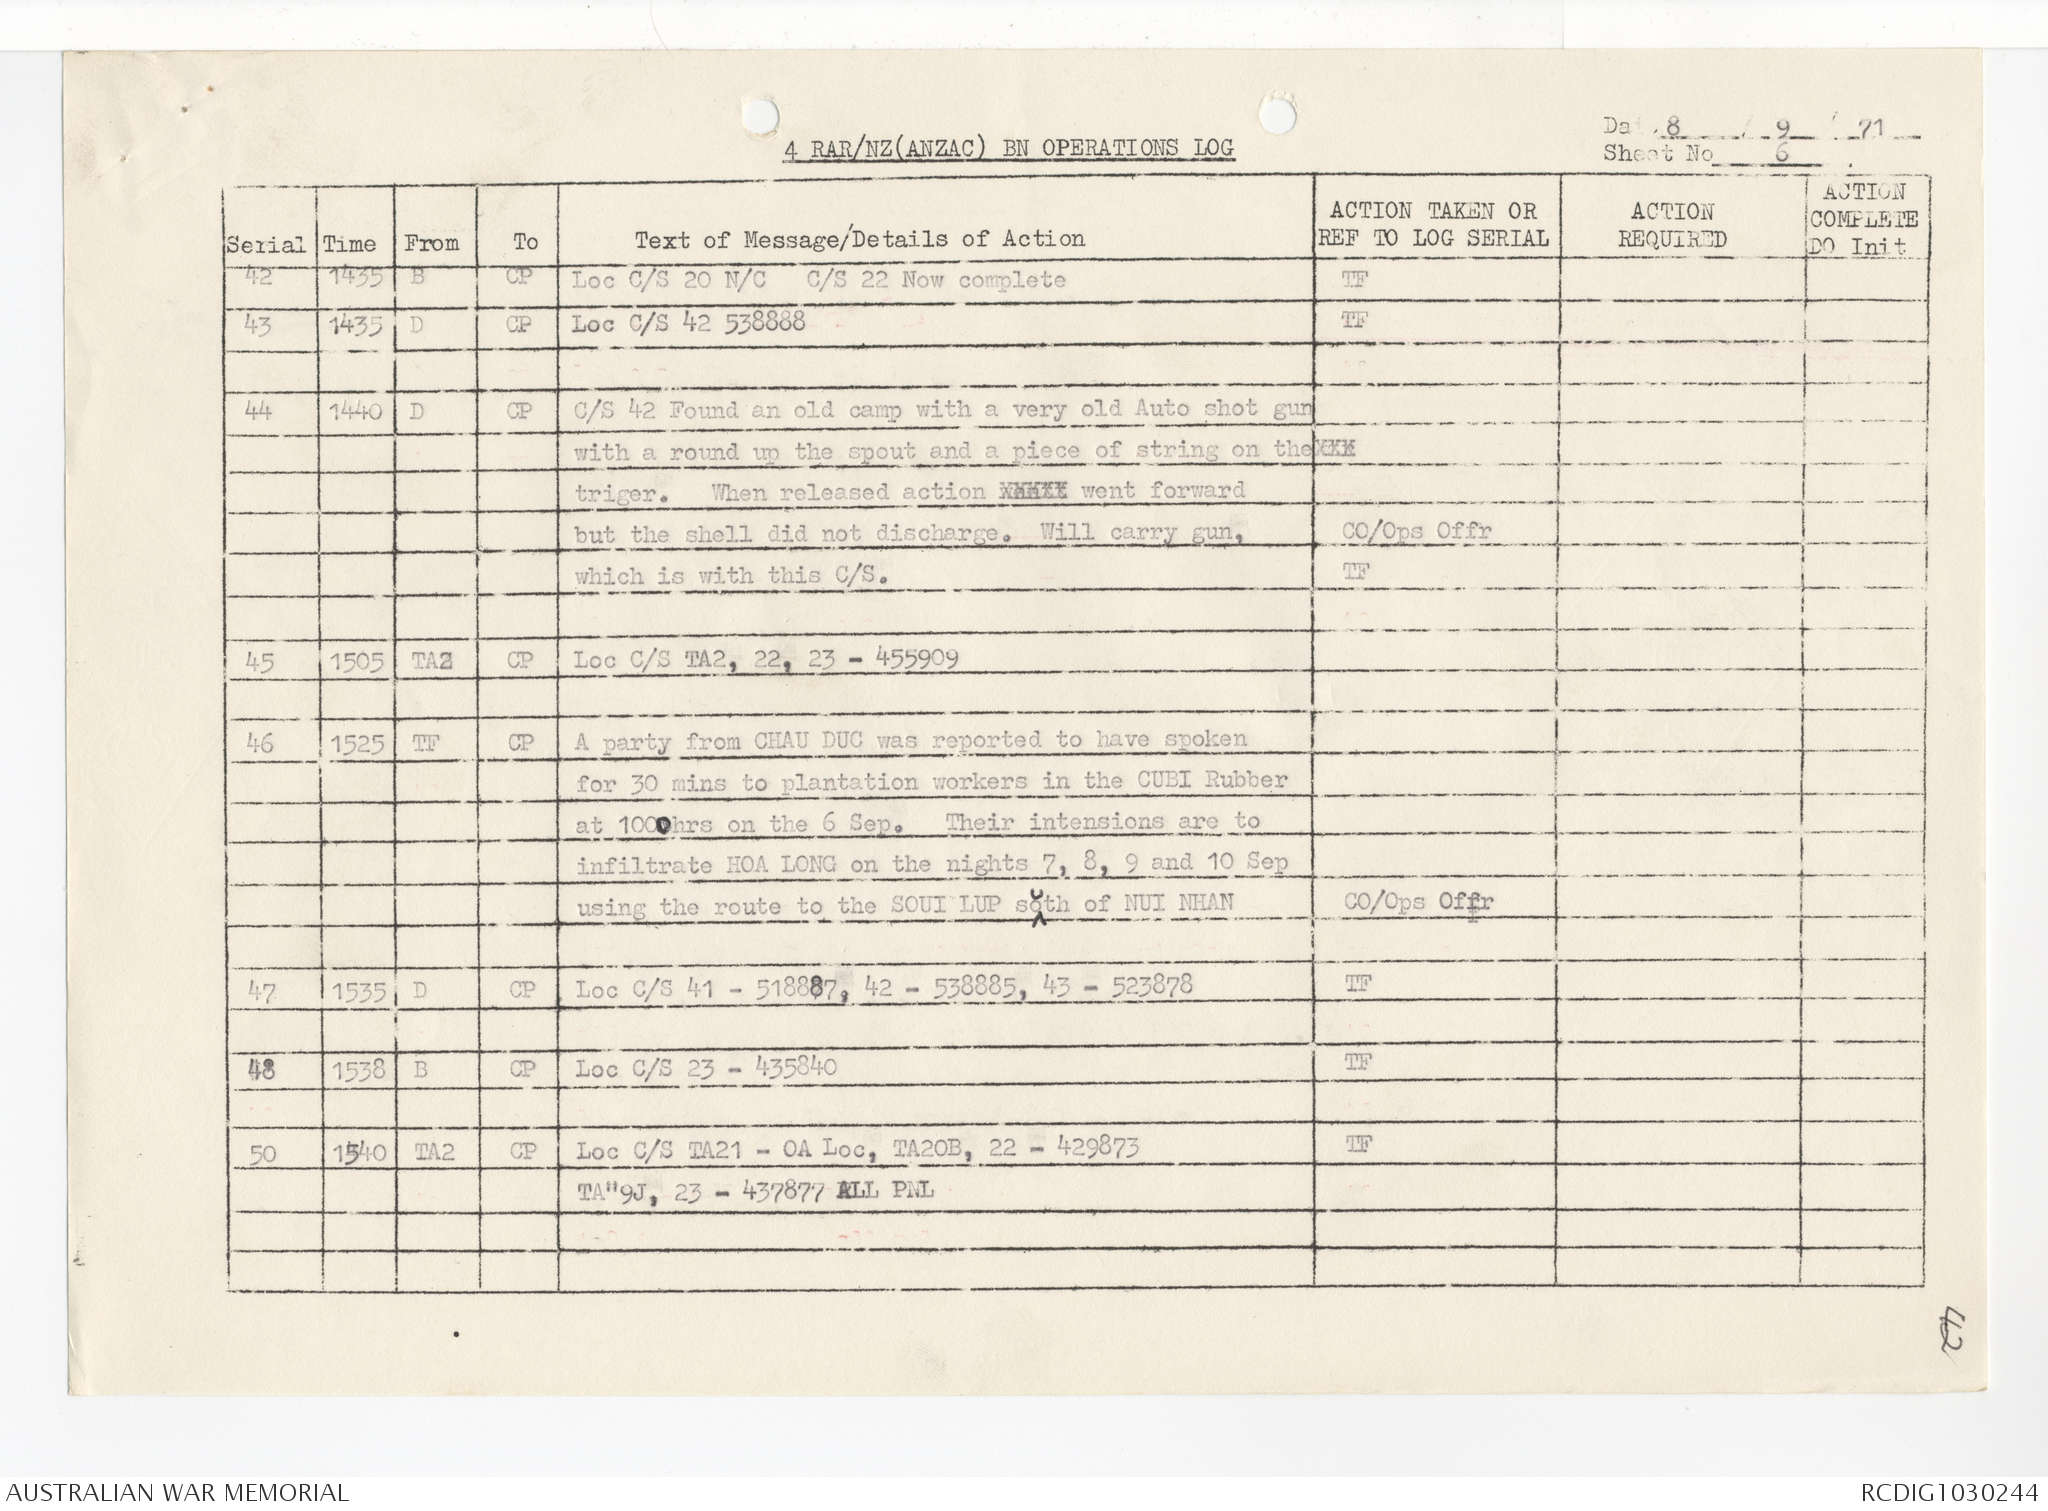 Date 8 / 9 / 71
4 RAR/NZ(ANZAC) BN OPERATIONS LOG
Sheet No 6
Serial Time From To Text of Message/Details of Action ACTION TAKEN OR REF TO LOG SERIAL ACTION REQUIRED ACTION COMPLETE DO Init
42 1435 B CP Loc C/S 20 N/C C/S 22 Now complete TF
43 1435 D CP Loc C/S 42 538888 TF
44 1440 D CP C/S 42 Found an old camp with a very old Auto shot gun
with a round up the spout and a piece of string on the
triger. When released action went forward
but the shell did not discharge. Will carry gun, CO/Ops Offr
which is with this C/S. TF
45 1505 TA2 CP Loc C/S TA2, 22, 23 - 455909
46 1525 TF CP A party from CHAU DUC was reported to have spoken
for 30 mins to plantation workers in the CUBI Rubber
at 1000hrs on the 6 Sep. Their intensions are to
infiltrate HOA LONG on the nights 7, 8, 9 and 10 Sep
using the route to the SOUI LUP south of NUI NHAN CO/Ops Offr
47 1535 D CP Loc C/S 41 - 518887, 42 - 538885, 43 - 523878 TF
48 1538 B CP Loc C/S 23 - 435840 TF
50 1540 TA2 CP Loc C/S TA21 - OA Loc, TA20B, 22 - 429873 TF
TA"9J, 23 - 437877 ALL PNL
42
AUSTRALIAN WAR MEMORIAL RCDIG1030244